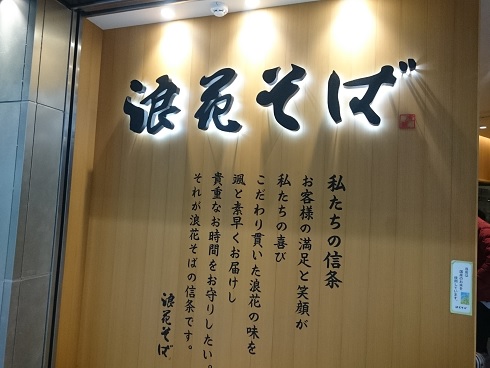 浪花そば
私たちの信条
お客様の満足と笑顔が
私たちの喜び
こだわり貫いた浪花の味を
颯と素早くお届けし
貴重なお時間をお守りしたい。
それが浪花そばの信条です。
浪花そば